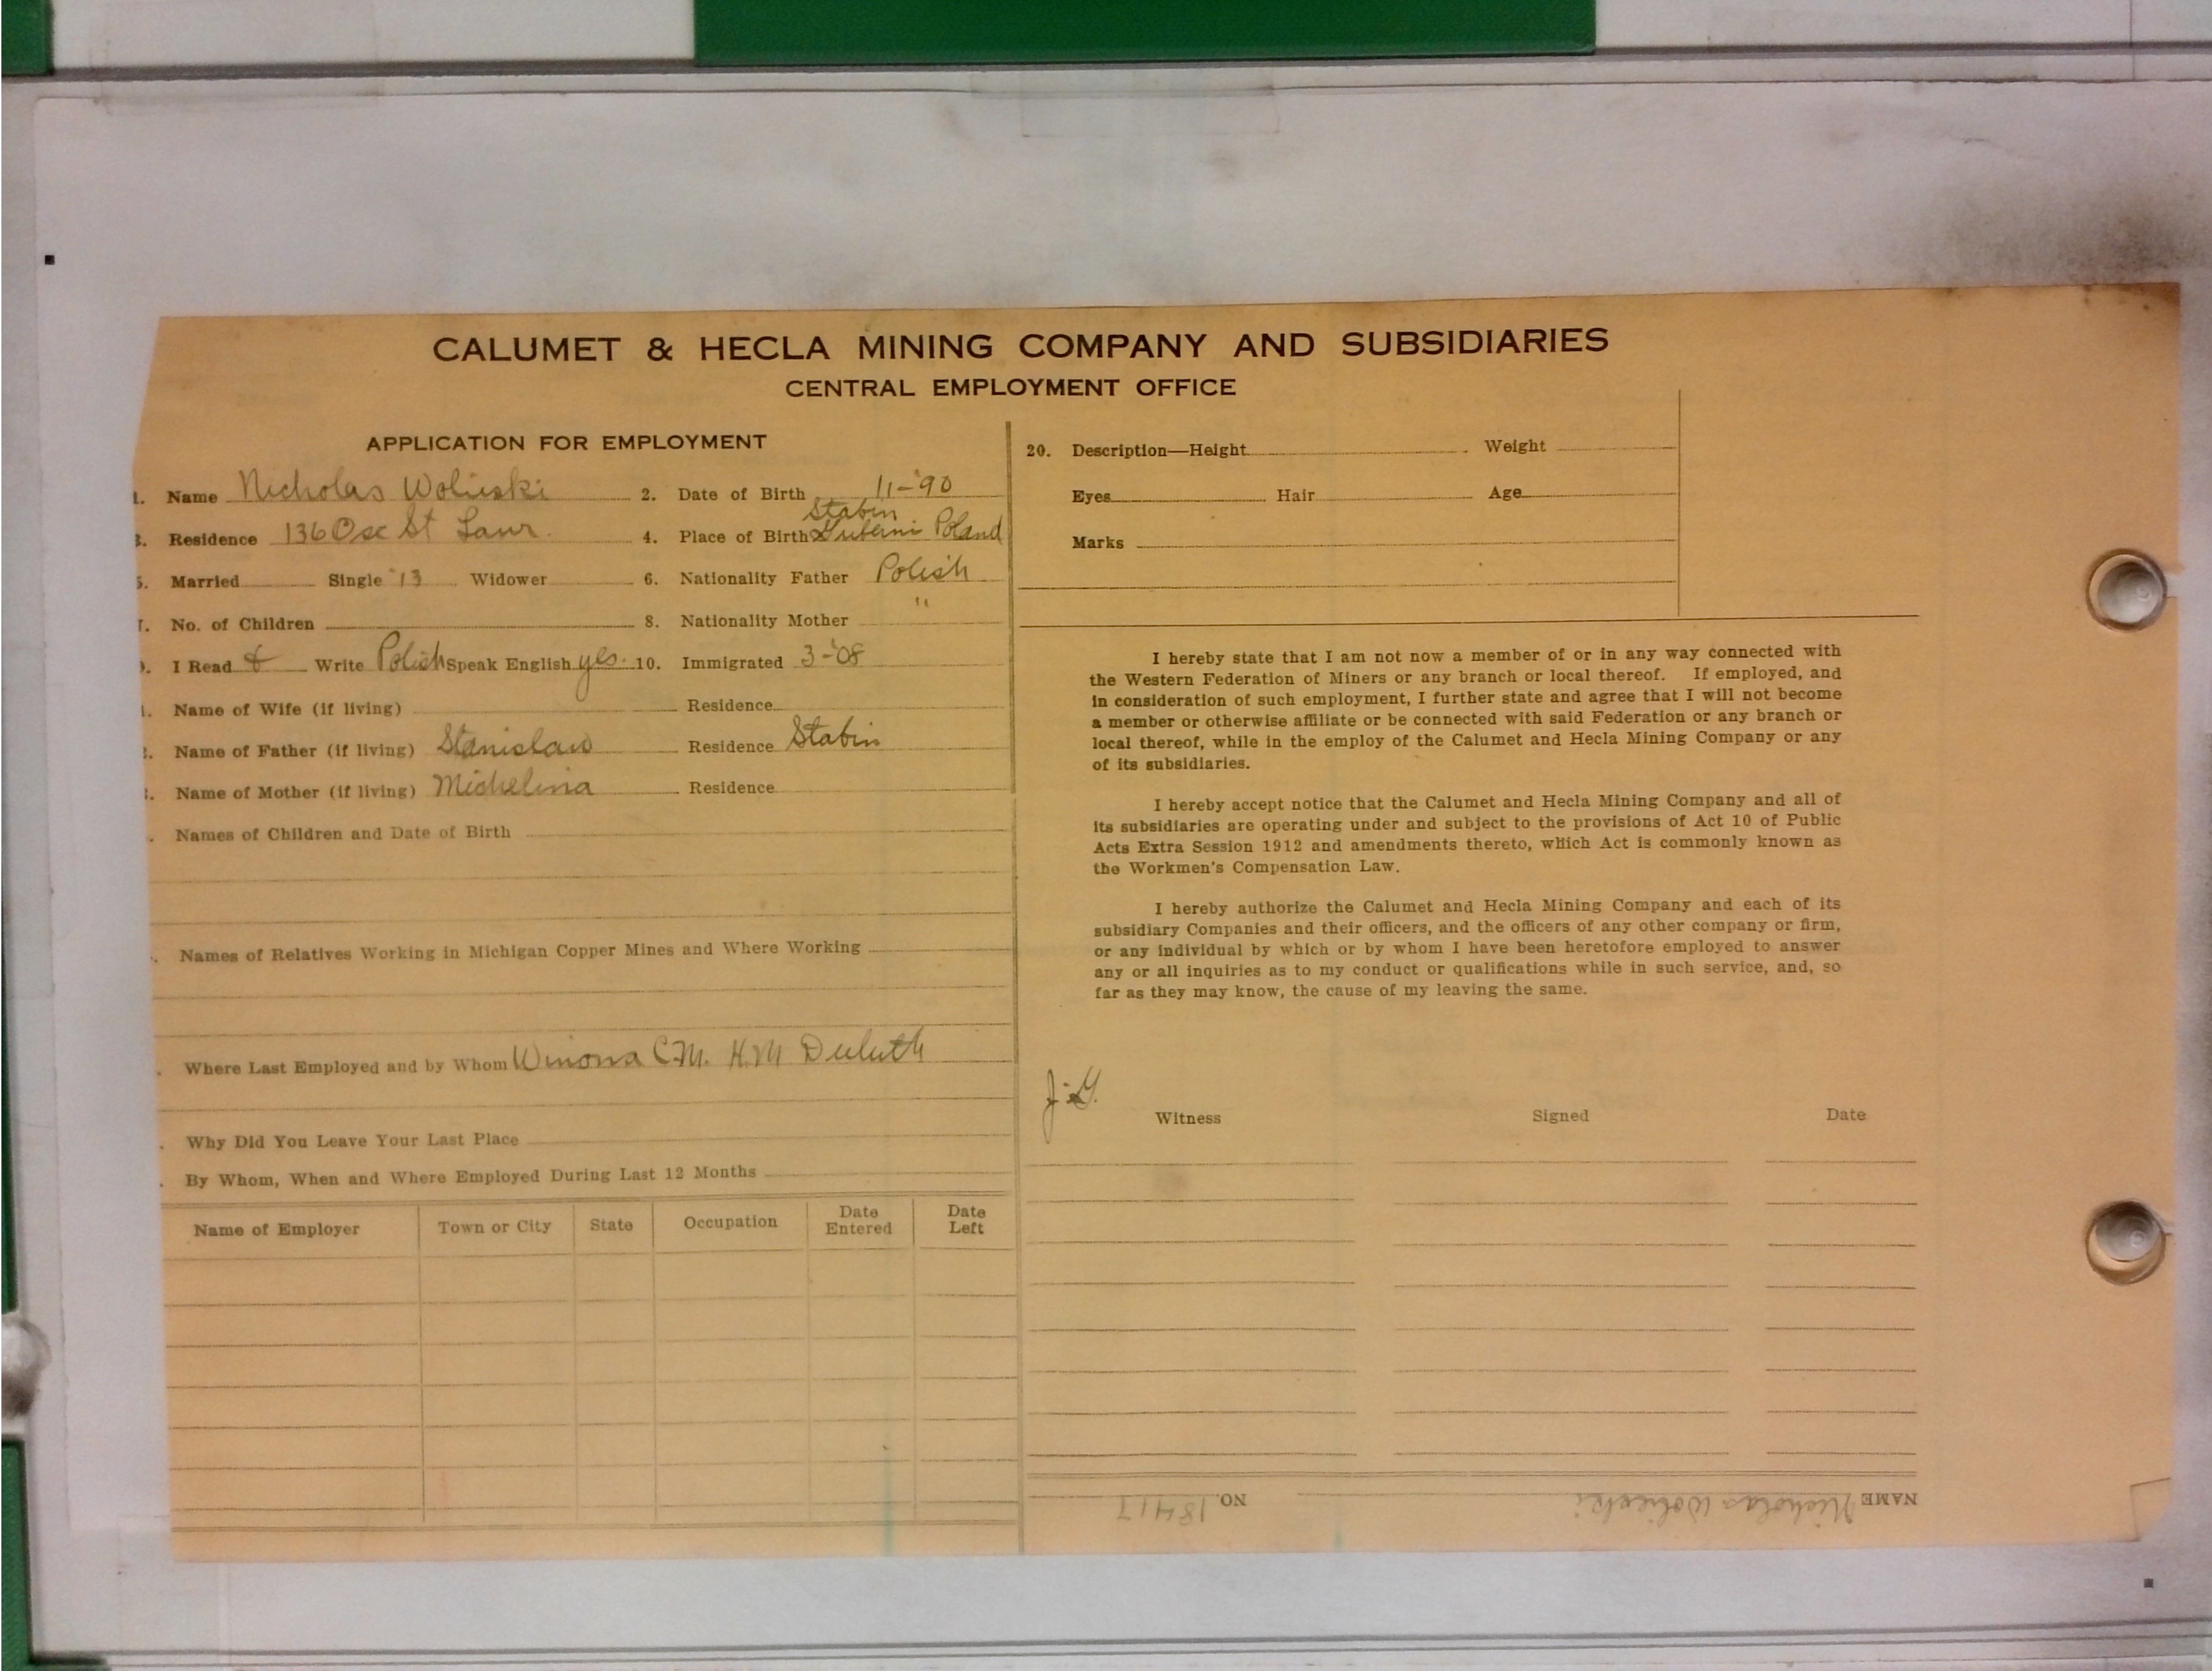 CALUMET & HECLA MINING COMPANY AND SUBSIDIARIES
CENTRAL EMPLOYMENT OFFICE
APPLICATION FOR EMPLOYMENT
1. Name Nicholas Wolinski 2. Date of Birth 11-'90
3. Residence 136 Osc St Laur. 4. Place of Birth Stabin Poland
5. Married Single '13 Widower 6. Nationality Father Polish
7. No. of Children 8. Nationality Mother "
9. I Read & Write Polish Speak English yes. 10. Immigrated 3-'08
Name of Wife (if living) Residence
Name of Father (if living) Stanislaw Residence Stabin
Name of Mother (if living) Michelina Residence
Names of Children and Date of Birth
Names of Relatives Working in Michigan Copper Mines and Where Working
Where Last Employed and by Whom Winona C.M. H.M Duluth
Why Did You Leave Your Last Place
By Whom, When and Where Employed During Last 12 Months
Name of Employer Town or City State Occupation Date Entered Date Left
20. Description—Height Weight
Eyes Hair Age
Marks
I hereby state that I am not now a member of or in any way connected with
the Western Federation of Miners or any branch or local thereof. If employed, and
in consideration of such employment, I further state and agree that I will not become
a member or otherwise affiliate or be connected with said Federation or any branch or
local thereof, while in the employ of the Calumet and Hecla Mining Company or any
of its subsidiaries.
I hereby accept notice that the Calumet and Hecla Mining Company and all of
its subsidiaries are operating under and subject to the provisions of Act 10 of Public
Acts Extra Session 1912 and amendments thereto, which Act is commonly known as
the Workmen's Compensation Law.
I hereby authorize the Calumet and Hecla Mining Company and each of its
subsidiary Companies and their officers, and the officers of any other company or firm,
or any individual by which or by whom I have been heretofore employed to answer
any or all inquiries as to my conduct or qualifications while in such service, and, so
far as they may know, the cause of my leaving the same.
J.G.
Witness Signed Date
NAME Nicholas Wolinski NO. 18417